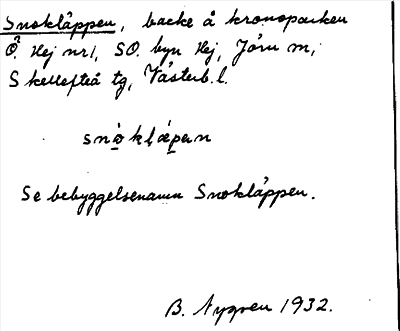 Snokläppen, backe å kronoparken
Ö. Hej nr 1, SO. byn Hej, Jörn sn,
Skellefteå tg, Västerb. l.
snò̱klǽpen
Se bebyggelsenamn Snokläppen.
B. Nygren 1932.